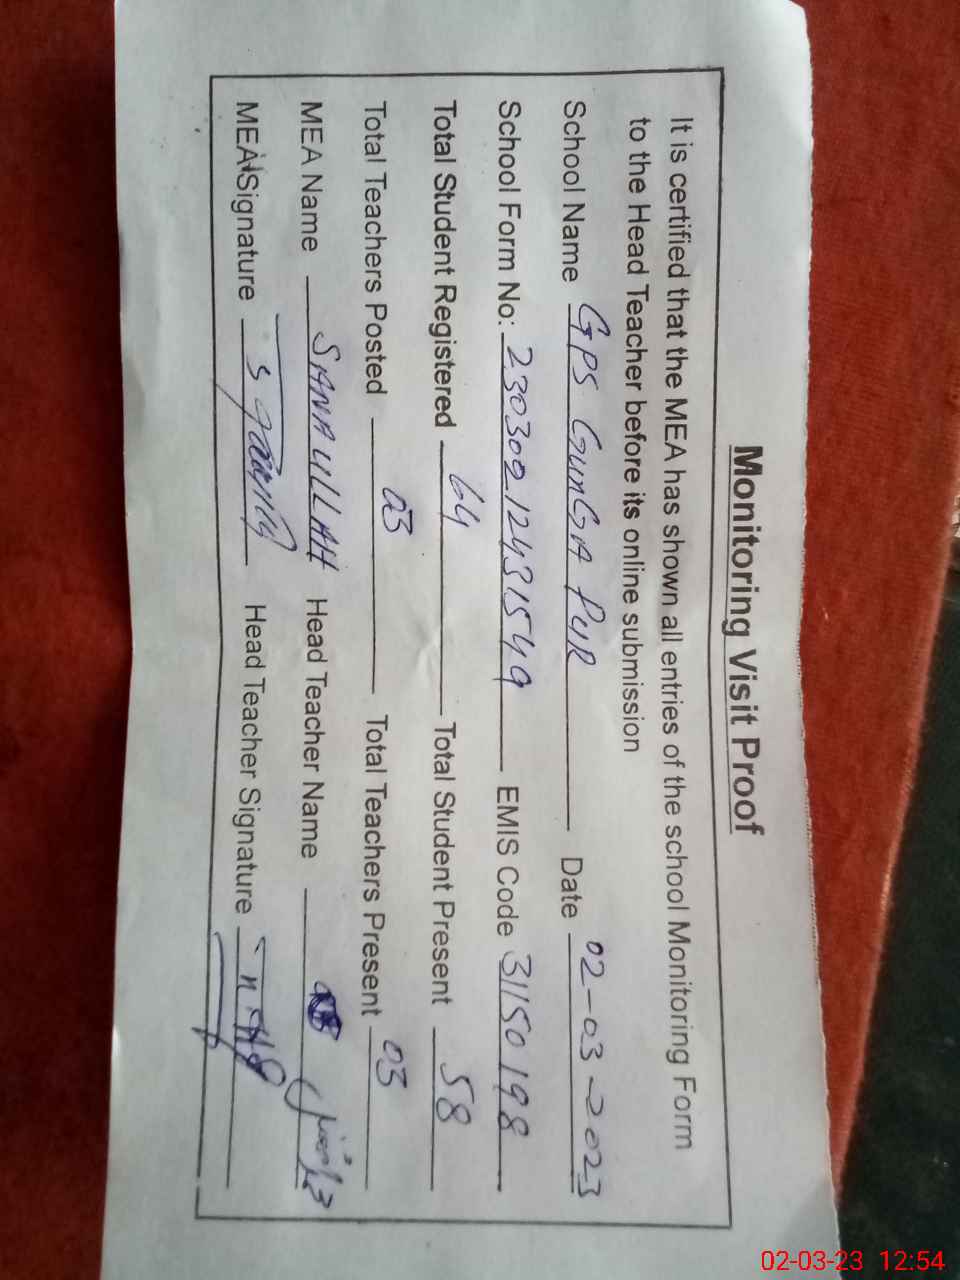 Monitoring Visit Proof
It is certified that the MEA has shown all entries of the school Monitoring Form
to the Head Teacher before its online submission
School Name GPS GunGA PUR Date 02-03-2023
School Form No: 23030912431549 EMIS Code 31150198
Total Student Registered 64 Total Student Present 58
Total Teachers Posted 03 Total Teachers Present 03
MEA Name SANAULLAH Head Teacher Name
MEA Signature Head Teacher Signature
02-03-23 12:54